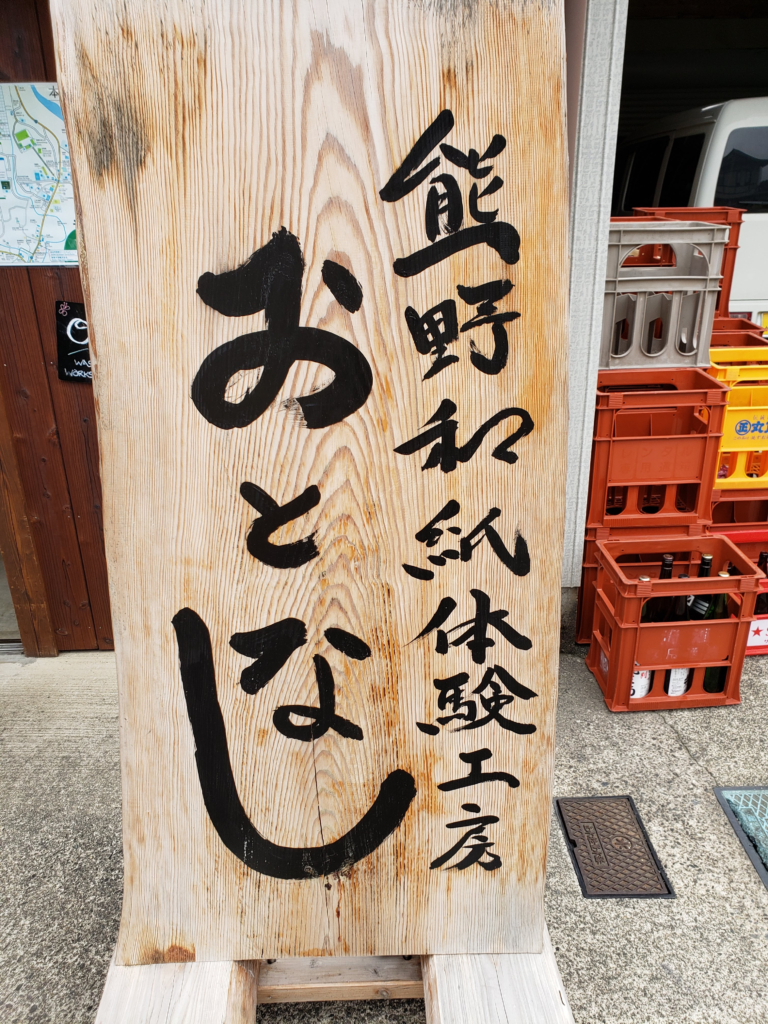 熊野和紙体験工房
おとなし
本
WAS
WORKS
丸